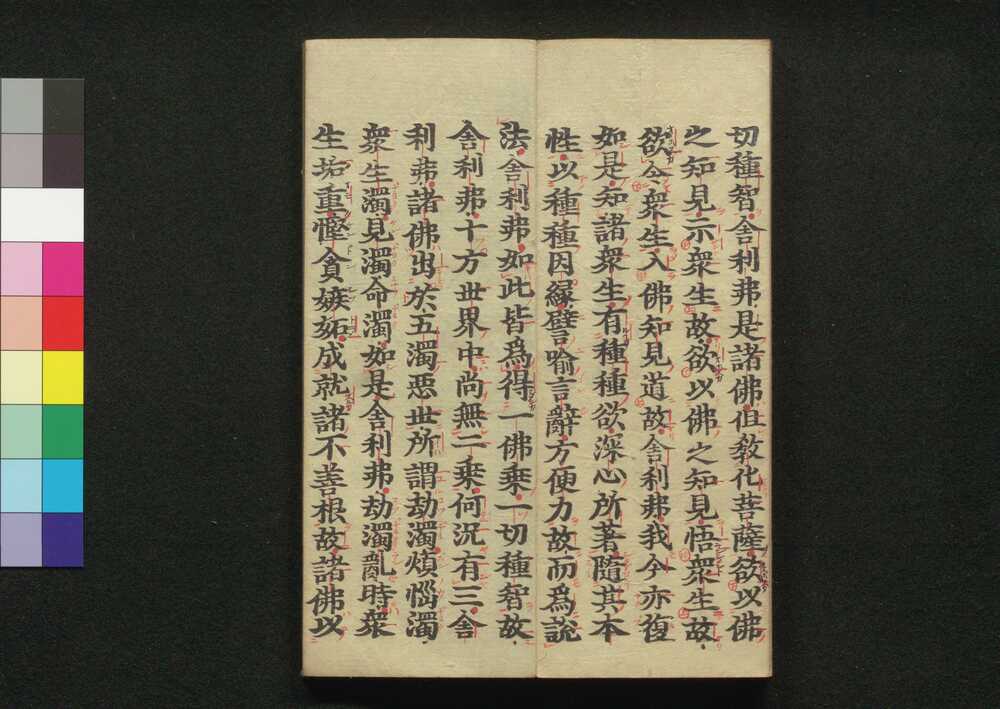 切種智舍利弗是諸佛但教化菩薩欲以佛
之知見示衆生故欲以佛之知見悟衆生故
欲令衆生入佛知見道故舍利弗我今亦復
如是知諸衆生有種種欲深心所著隨其本
性以種種因縁譬喩言辭方便力故而爲說
法舍利弗如此皆爲得一佛乗一切種智故
舍利弗十方世界中尚無二乗何況有三舍
利弗諸佛出於五濁惡世所謂劫濁煩惱濁
衆生濁見濁命濁如是舍利弗劫濁亂時衆
生垢重慳貪嫉妬成就諸不善根故諸佛以